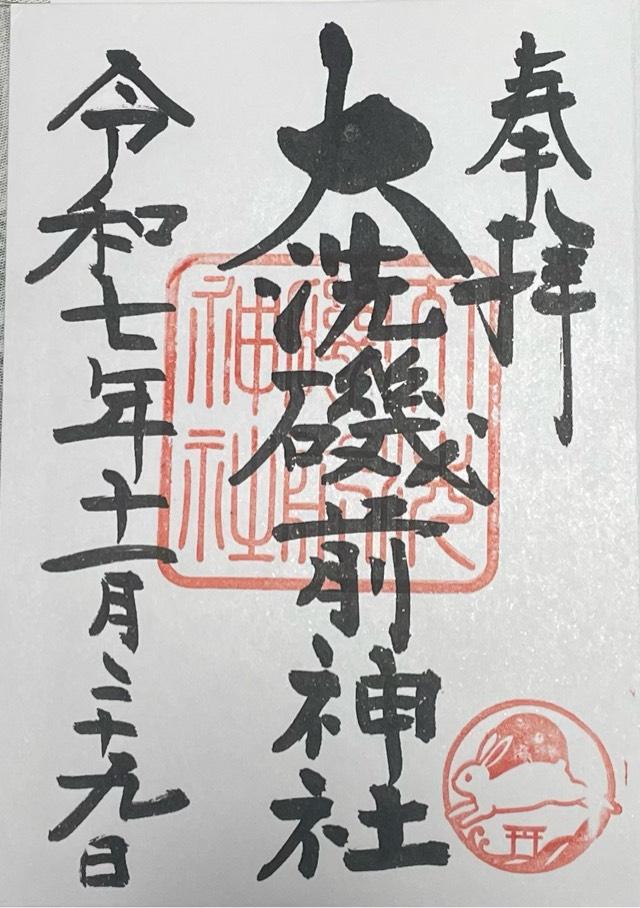 奉拝
大洗磯前神社
令和七年十一月二十九日
大洗
磯前
神社